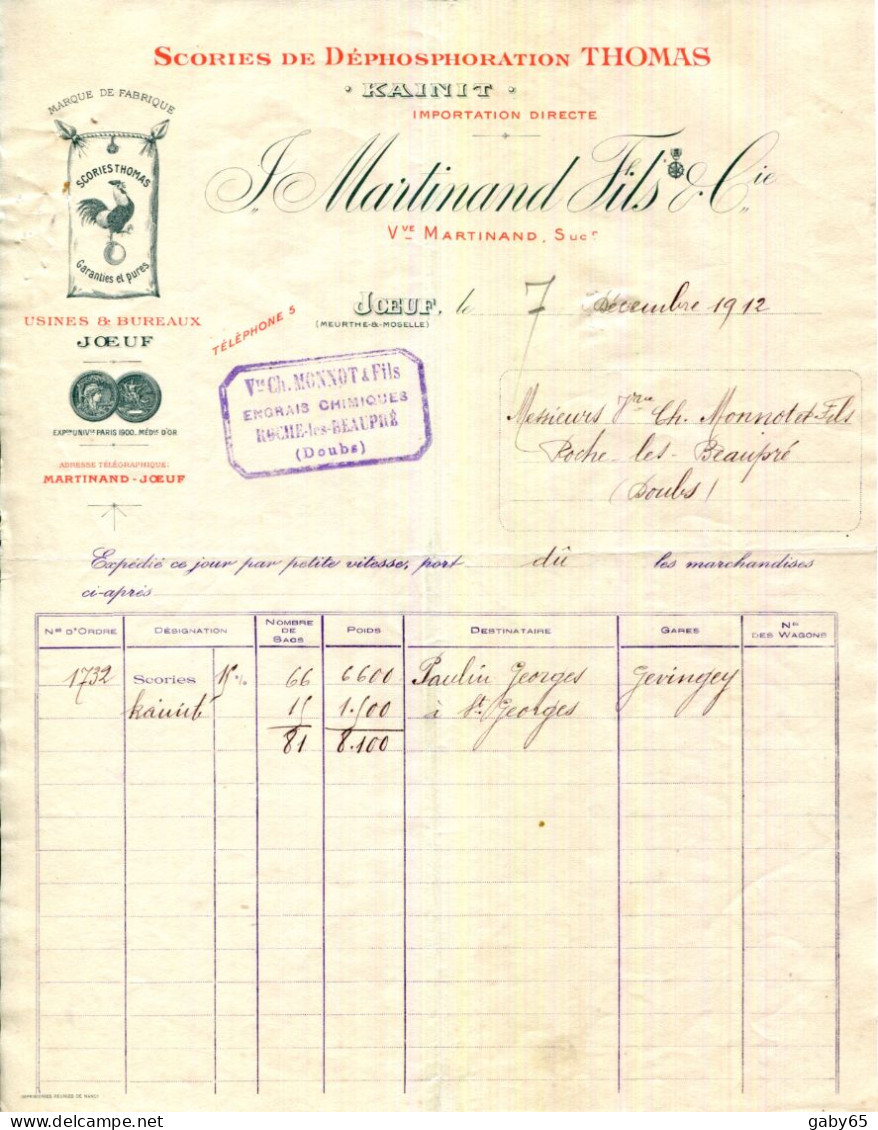 SCORIES DE DÉPHOSPHORATION THOMAS
· KAINIT ·
IMPORTATION DIRECTE
J. Martinand Fils & Cie
Vve MARTINAND, Sucr
MARQUE DE FABRIQUE
SCORIES THOMAS
Garanties et pures
USINES & BUREAUX
JŒUF
TÉLÉPHONE 5
JŒUF, le 7 Décembre 1912
(MEURTHE-&-MOSELLE)
EXPon UNIVlle PARIS 1900. MÉDle D'OR
ADRESSE TÉLÉGRAPHIQUE:
MARTINAND-JŒUF
Vve Ch. MONNOT & Fils
ENGRAIS CHIMIQUES
ROCHE-les-BEAUPRÉ
(Doubs)
Messieurs Vve Ch. Monnot et Fils
Roche-les-Beaupré
(Doubs)
Expédié ce jour par petite vitesse, port dû les marchandises
ci-après
Nos D'ORDRE DÉSIGNATION NOMBRE DE SACS POIDS DESTINATAIRE GARES Nos DES WAGONS
1732 Scories 15% 66 6600 Paulin Georges Gevingey
Kainit 15 1.500 à St Georges
81 8.100
IMPRIMERIES RÉUNIES DE NANCY
delcampe.net
gaby65